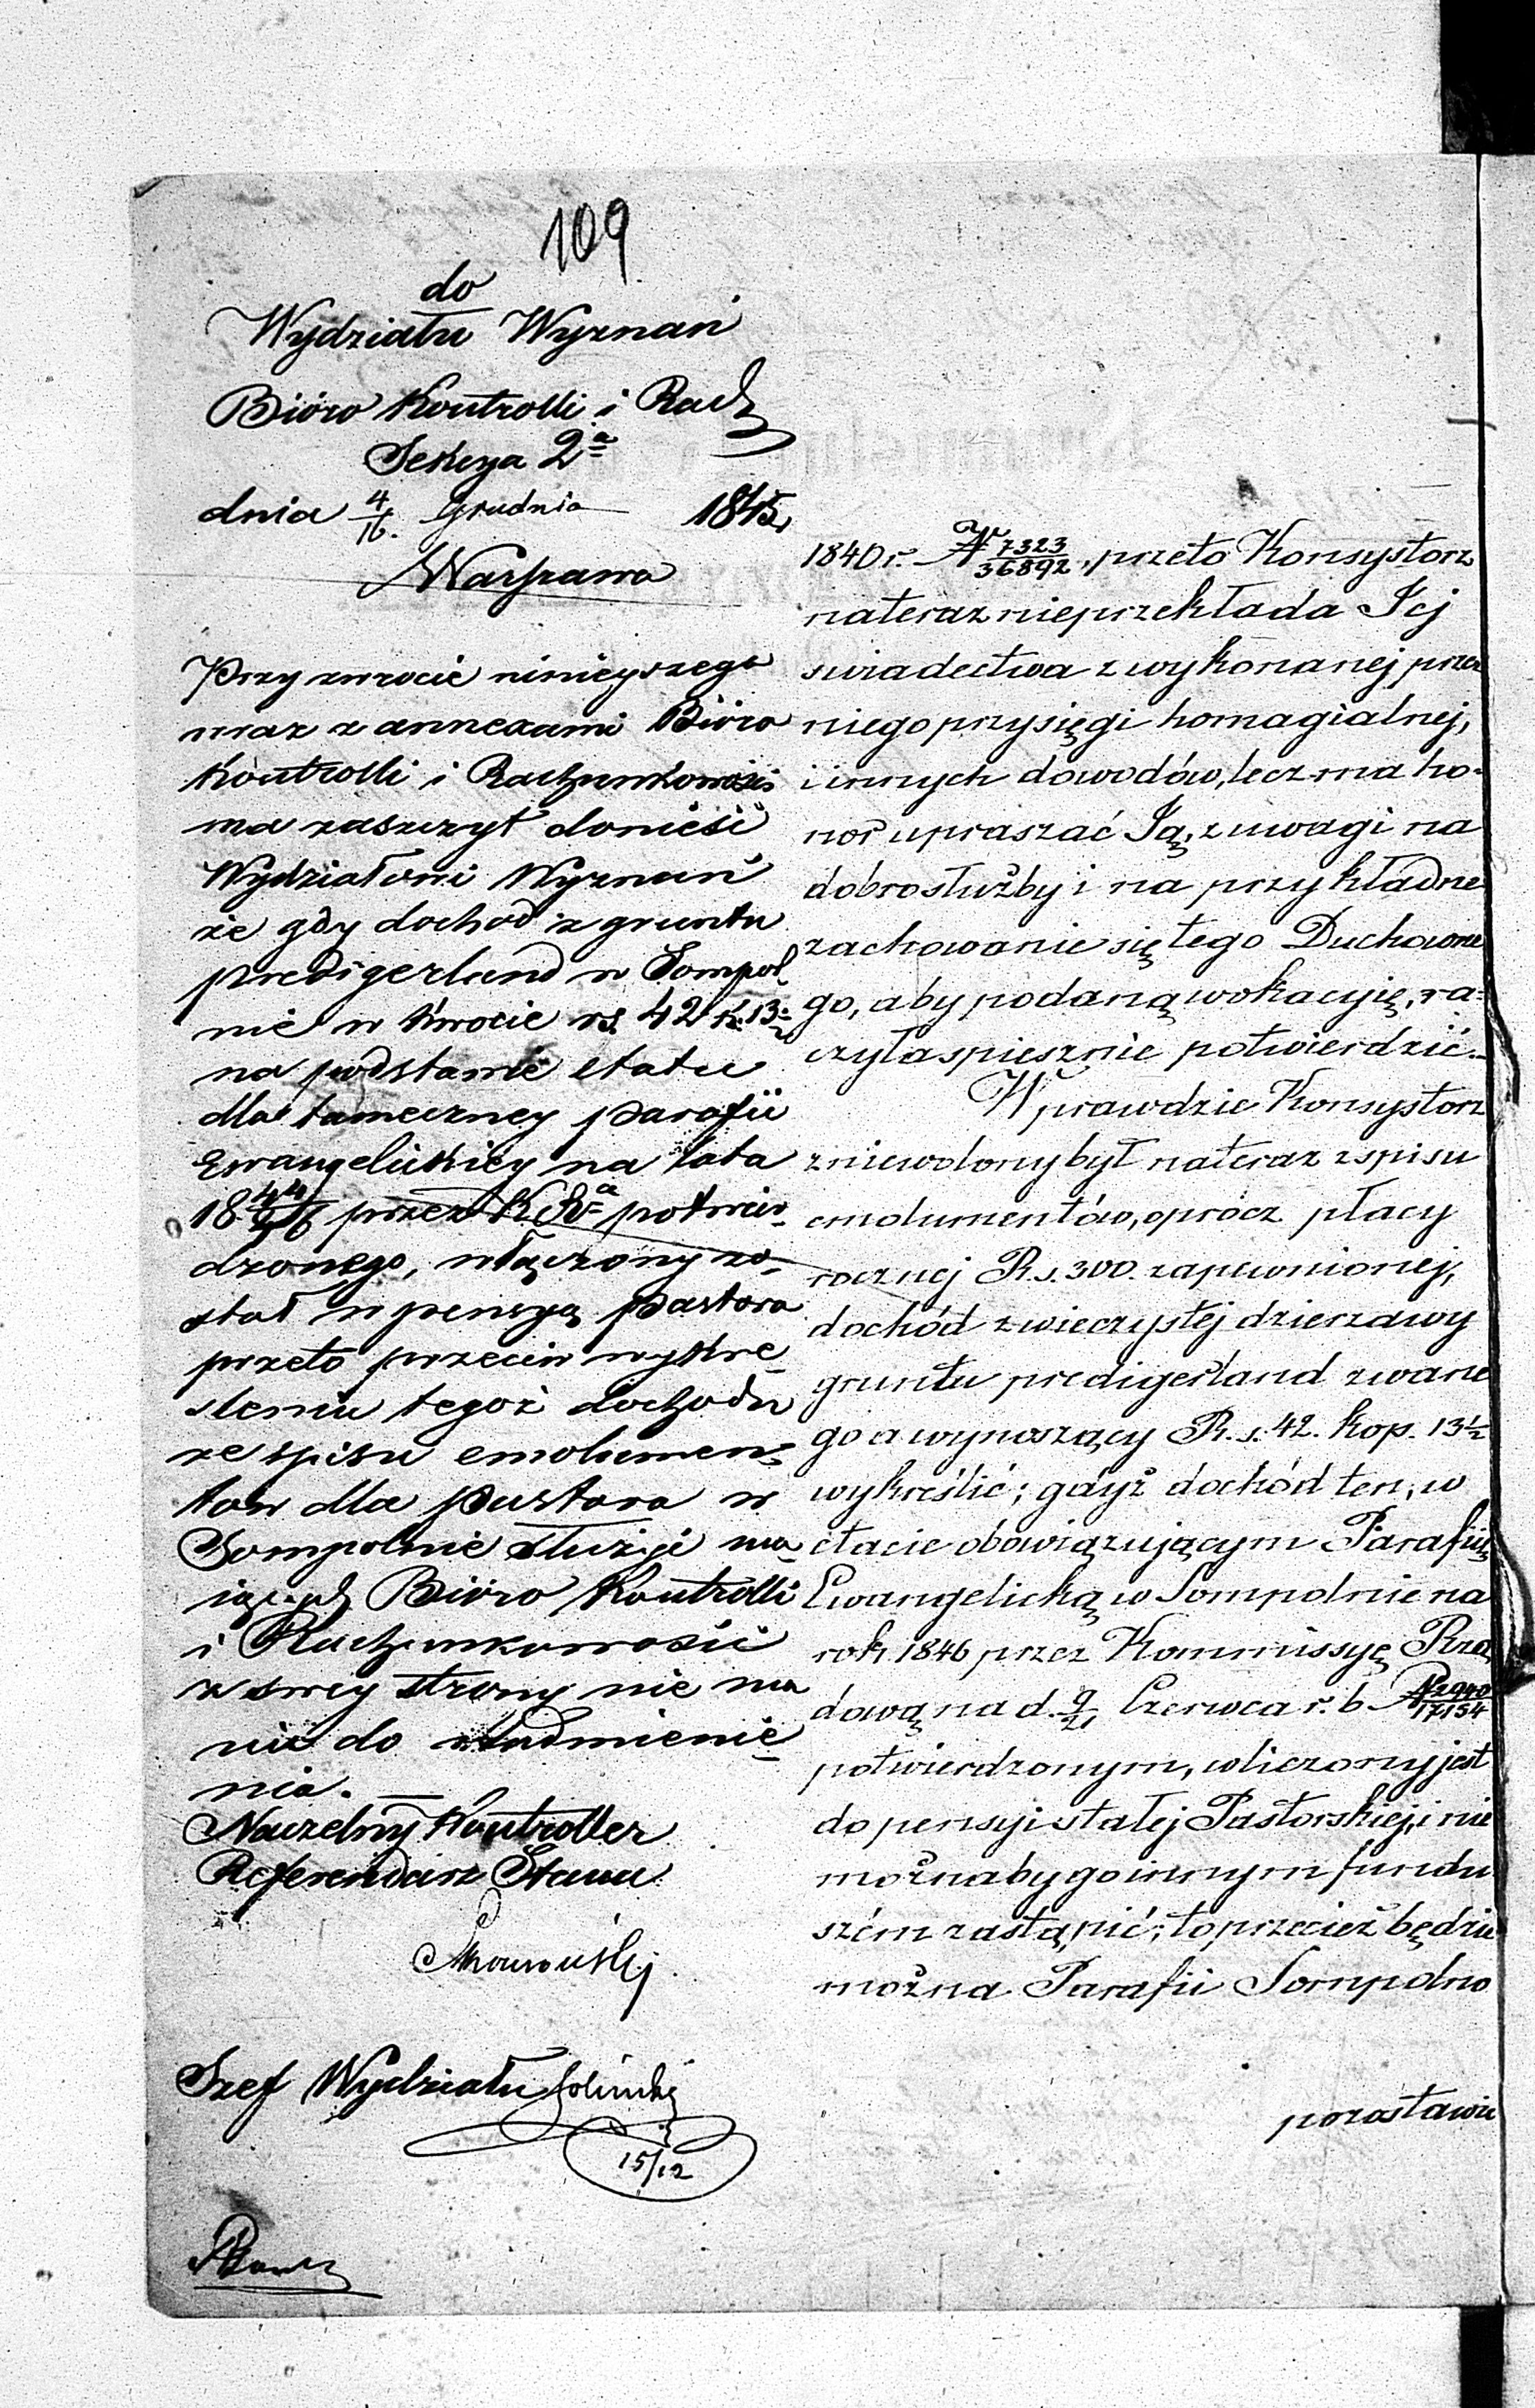 109
do
Wydziału Wyznań
Bióro Kontrolli i Rach
Sekcya 2a
dnia 4/16. Grudnia 1845,
Warszawa
Przy zwrocie ninieyszego
wraz z annexami Bióro
Kontrolli i Rachunkowości
ma zaszczyt donieść
Wydziałowi Wyznań
że gdy dochod z gruntu
predigerland w Sompol-
nie w kwocie rs. 42 k. 13½
na podstawie etatu
dla tameczney parafii
Ewangelickiey na lata
18 44/46 przez K. potwier-
dzonego, włączony zo-
stał w pensyą pastora
przeto przeciw wykre-
śleniu tegoż dochodu
ze spisu emolumen-
tow dla pastora w
Sompolnie służyć ma-
iących Bióro Kontrolli
i Rachunkowości
z swey strony nie ma
nic do nadmienie-
nia.
Naczelny Kontroller
Referendarz Stanu
Szef Wydziału
15/12
1840 r. N 7323/36892, przeto Konsystorz
nateraz nieprzekłada Jej
swiadectwa z wykonanej przez
niego przysięgi homagialnej,
i innych dowodów, lecz ma ho-
nor upraszać Ją, z uwagi na
dobro służby i na przykładne
zachowanie się tego Duchowne
go, aby podaną wokacyję, ra-
czyła spiesznie potwierdzić.
Wprawdzie Konsystorz
zniewolony był nateraz z spisu
emolumentów, oprócz płacy
rocznej R.s. 300. zapewnionej,
dochód z wieczystej dzierzawy
gruntu predigerland zwane
go a wynoszący R.s. 42. kop. 13½
wykreślić; gdyż dochód ten, w
etacie obowiązującym Parafiią
Ewangelicką w Sompolnie na
rok 1846 przez Kommissyę Rzą
dową na d. 9/21 Czerwca r. b. N 2940/17154
potwierdzonym, wliczony jest
do pensyi stałej Pastorskiej, i nie
możnaby go innym fundu
szém zastąpić; to przecież będzie
można Parafii Sompolno
pozostawić